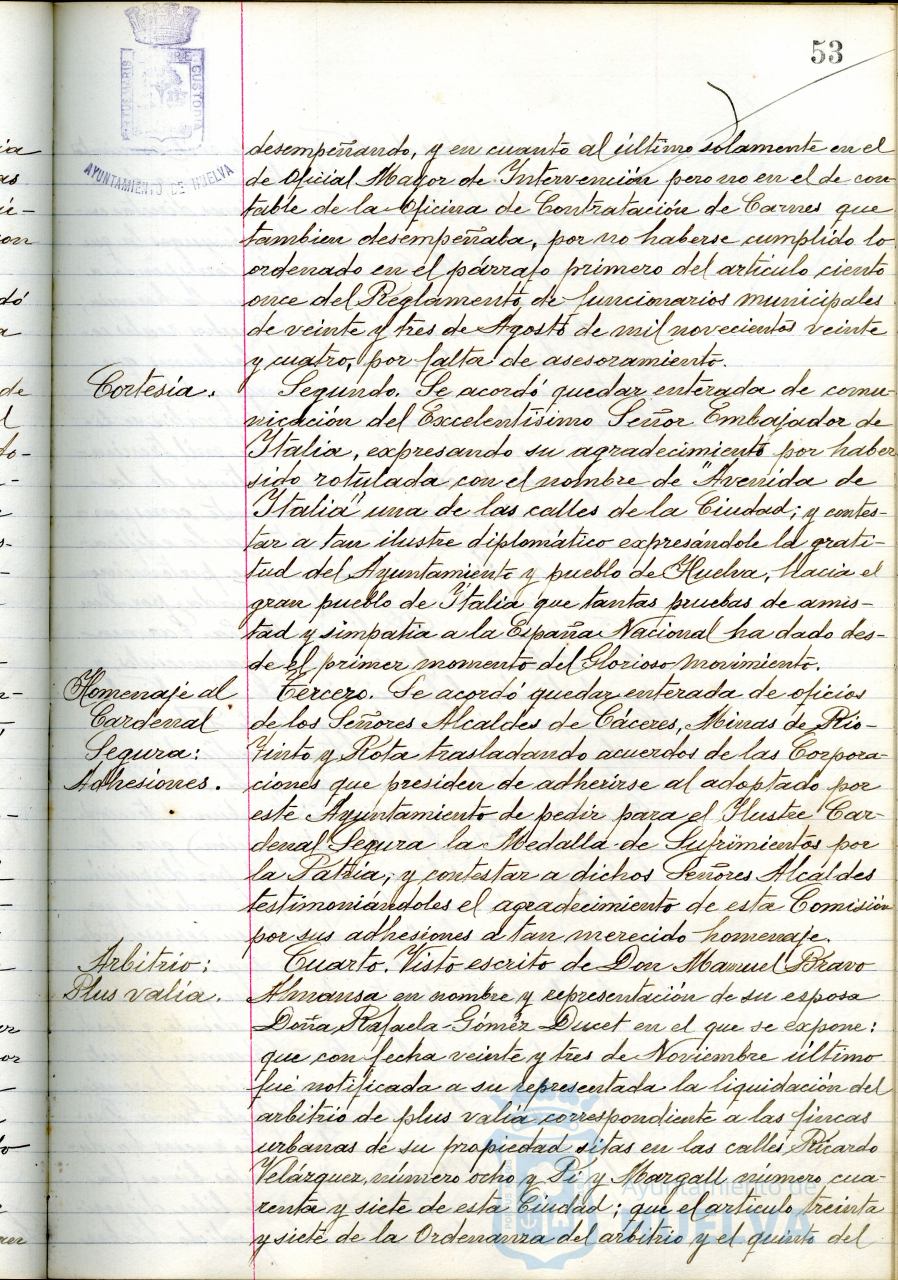 53
PORTUS MARIS ET TERRE CUSTODIA
AYUNTAMIENTO DE HUELVA
desempeñando, y en cuanto al último solamente en el
de Oficial Mayor de Intervención pero no en el de con-
table de la Oficina de Contratación de Carnes que
tambien desempeñaba, por no haberse cumplido lo
ordenado en el párrafo primero del artículo ciento
once del Reglamento de funcionarios municipales
de veinte y tres de Agosto de mil novecientos veinte
y cuatro, por falta de asesoramiento.
Cortesía.
Segundo. Se acordó quedar enterada de comu-
nicación del Excelentísimo Señor Embajador de
Italia, expresando su agradecimiento por haber
sido rotulada con el nombre de "Avenida de
Italia" una de las calles de la Ciudad; y contes-
tar a tan ilustre diplomático expresándole la grati-
tud del Ayuntamiento y pueblo de Huelva, hacia el
gran pueblo de Italia que tantas pruebas de amis-
tad y simpatia a la España Nacional ha dado des-
de el primer momento del Glorioso Movimiento.
Homenaje al
Cardenal
Segura:
Adhesiones.
Tercero. Se acordó quedar enterada de oficios
de los Señores Alcaldes de Cáceres, Minas de Rio-
Tinto y Rota trasladando acuerdos de las Corpora-
ciones que presiden de adherirse al adoptado por
este Ayuntamiento de pedir para el Ilustre Car-
denal Segura la Medalla de Sufrimientos por
la Patria; y contestar a dichos Señores Alcaldes
testimoniándoles el agradecimiento de esta Comisión
por sus adhesiones a tan merecido homenaje.
Arbitrio:
Plus valía.
Cuarto. Visto escrito de Don Manuel Bravo
Almansa en nombre y representación de su esposa
Doña Rafaela Gómez Ducet en el que se expone:
que con fecha veinte y tres de Noviembre último
fué notificada a su representada la liquidación del
arbitrio de plus valía correspondiente a las fincas
urbanas de su propiedad sitas en las calles Ricardo
Velázquez, número ocho y Pi y Margall número cua-
renta y siete de esta Ciudad; que el artículo treinta
y siete de la Ordenanza del arbitrio y el quinto del
Ayuntamiento de
HUELVA